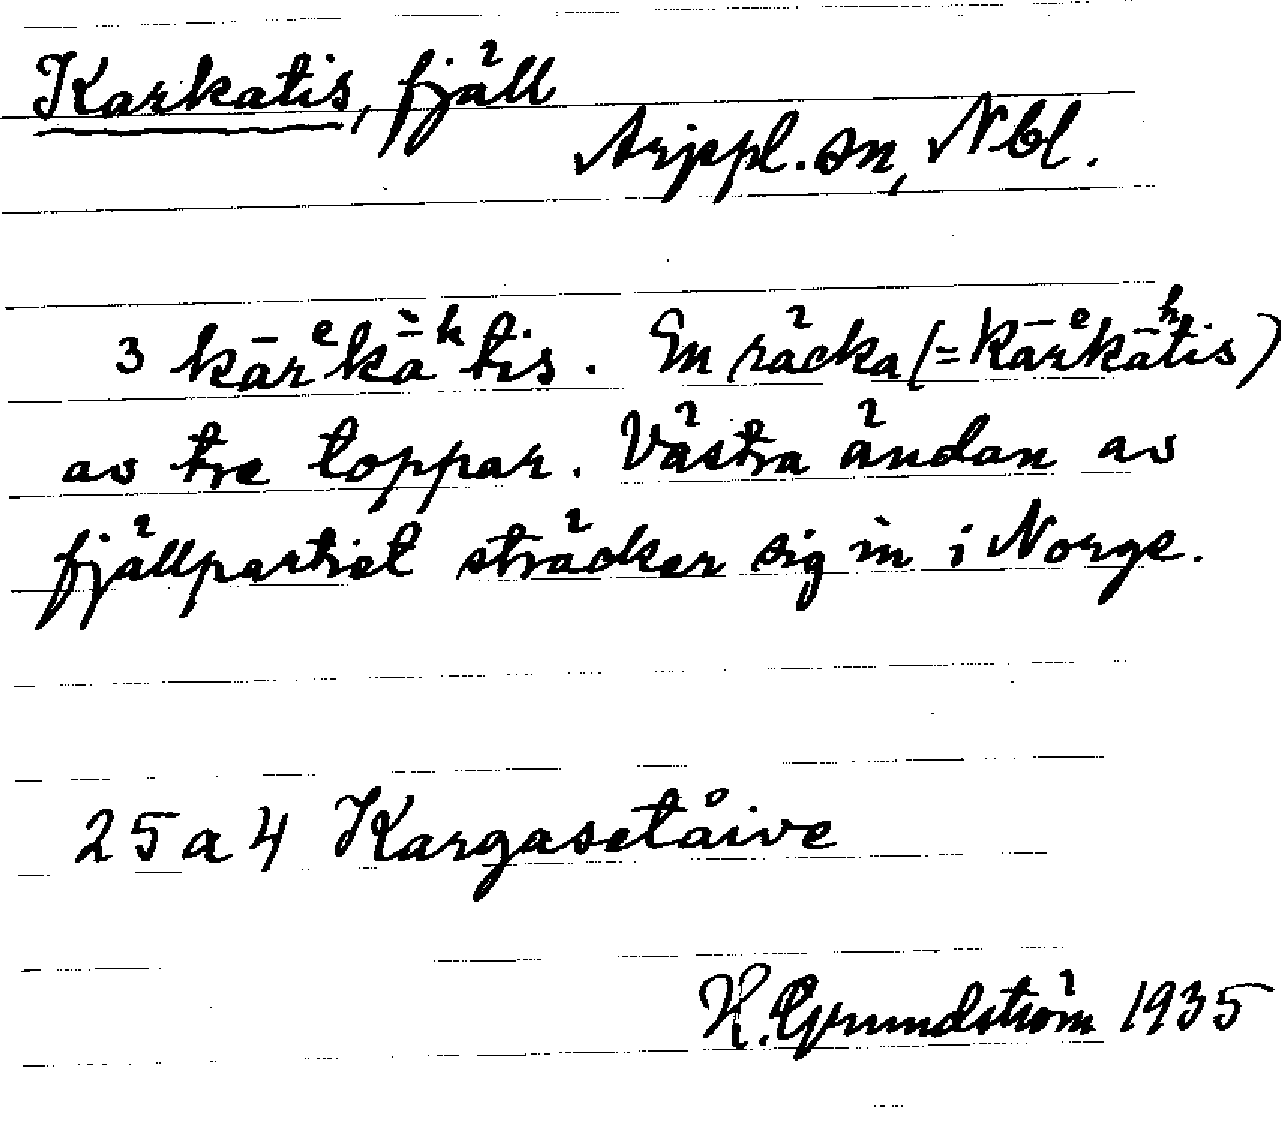 Karkatis, fjäll
Arjepl. sn, Nbl.
3 kārᵉkā̀ʰtis. En räcka (=kārᵉkāʰtis)
av tre toppar. Västra ändan av
fjällpartiet sträcker sig in i Norge.
25 a 4 Kargasetåive
H. Grundström 1935